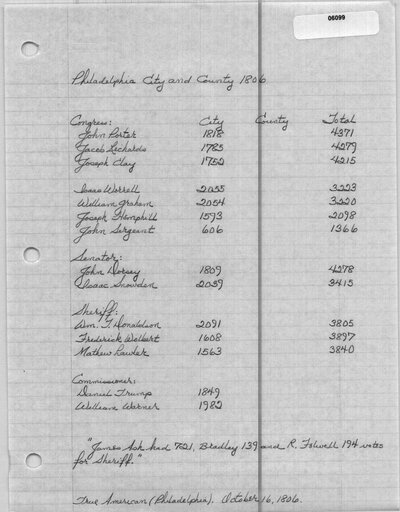 06099
Philadelphia City and County 1806
Congress: City County Total
John Porter 1818 4371
Jacob Richards 1785 4279
Joseph Clay 1752 4215
Isaac Worrell 2055 3223
William Graham 2054 3220
Joseph Hemphill 1593 2098
John Sergeant 606 1366
Senator:
John Dorsey 1809 4278
Isaac Snowden 2039 3415
Sheriff:
Wm. T. Donaldson 2091 3805
Frederick Wolbert 1608 3897
Mathew Lawler 1563 3840
Commissioner:
Daniel Trump 1849
William Warner 1982
"James Ash had 721, Bradley 139 and R. Folwell 194 votes
for Sheriff."
True American (Philadelphia). October 16, 1806.